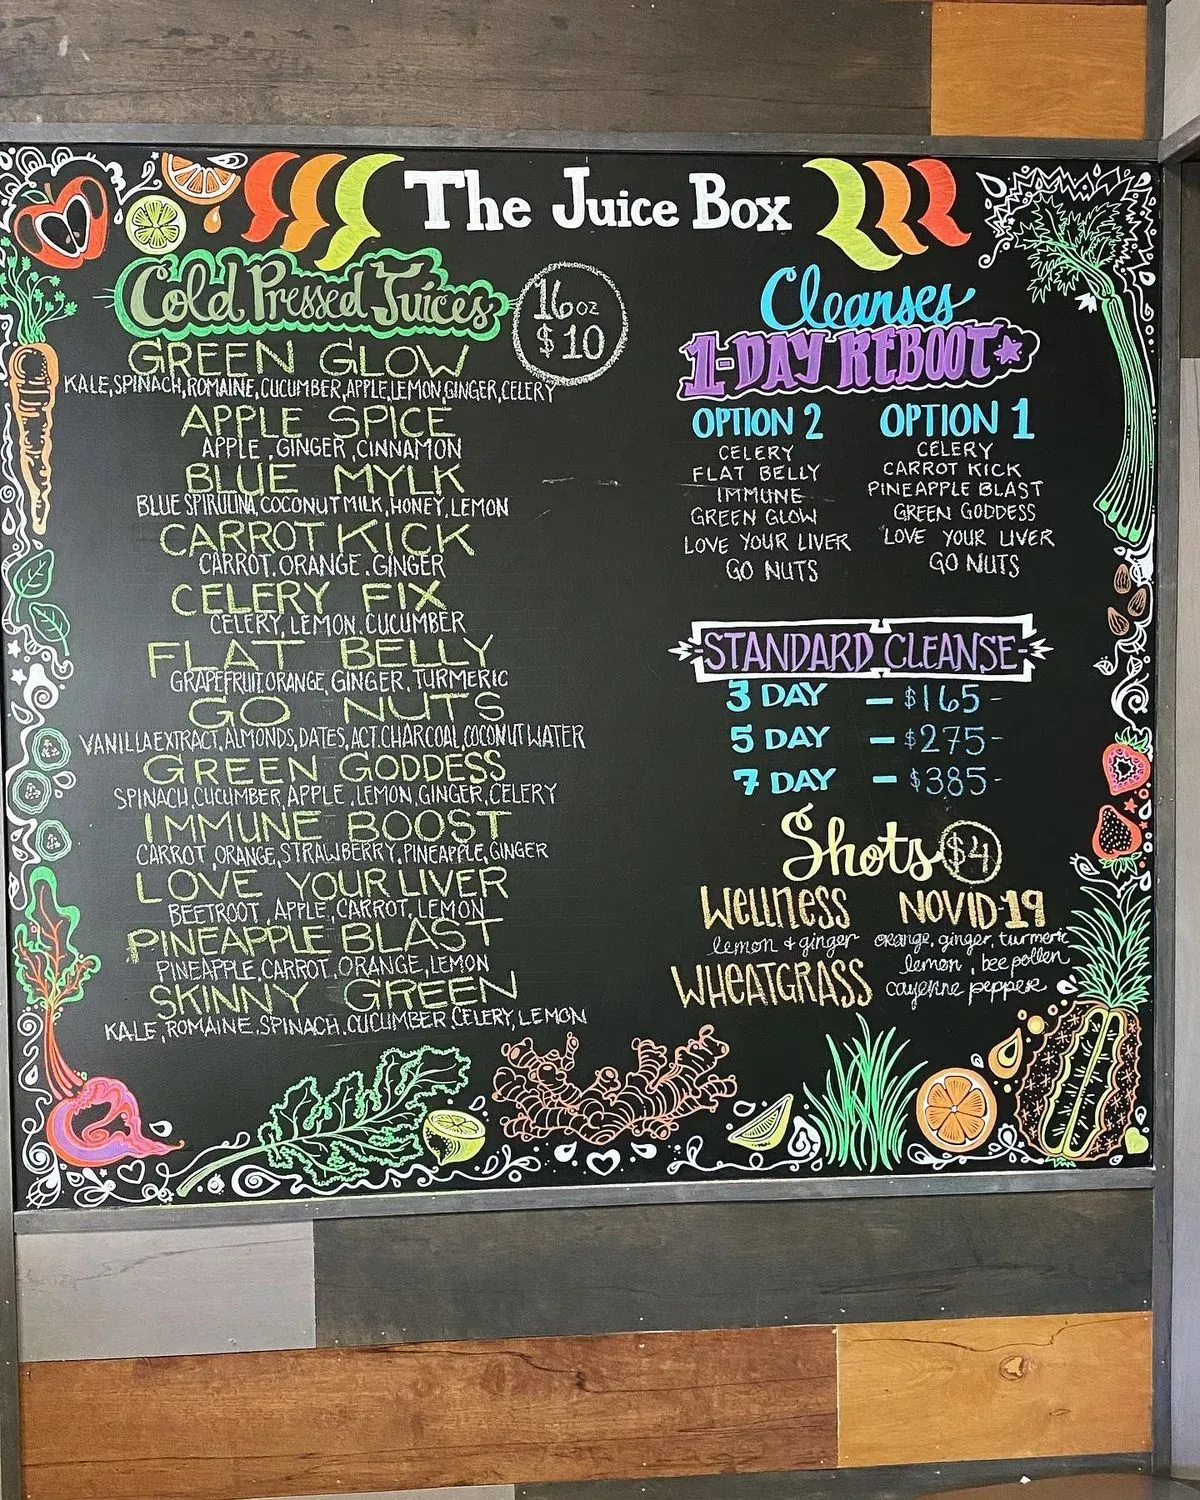 The Juice Box
Cold Pressed Juices
16oz
$10
GREEN GLOW
KALE, SPINACH, ROMAINE, CUCUMBER, APPLE, LEMON, GINGER, CELERY
APPLE SPICE
APPLE, GINGER, CINNAMON
BLUE MYLK
BLUE SPIRULINA, COCONUT MILK, HONEY, LEMON
CARROT KICK
CARROT, ORANGE, GINGER
CELERY FIX
CELERY, LEMON, CUCUMBER
FLAT BELLY
GRAPEFRUIT, ORANGE, GINGER, TURMERIC
GO NUTS
VANILLA EXTRACT, ALMONDS, DATES, ACT. CHARCOAL, COCONUT WATER
GREEN GODDESS
SPINACH, CUCUMBER, APPLE, LEMON, GINGER, CELERY
IMMUNE BOOST
CARROT, ORANGE, STRAWBERRY, PINEAPPLE, GINGER
LOVE YOUR LIVER
BEETROOT, APPLE, CARROT, LEMON
PINEAPPLE BLAST
PINEAPPLE, CARROT, ORANGE, LEMON
SKINNY GREEN
KALE, ROMAINE, SPINACH, CUCUMBER, CELERY, LEMON
Cleanses
1-DAY REBOOT*
OPTION 2
CELERY
FLAT BELLY
IMMUNE
GREEN GLOW
LOVE YOUR LIVER
GO NUTS
OPTION 1
CELERY
CARROT KICK
PINEAPPLE BLAST
GREEN GODDESS
LOVE YOUR LIVER
GO NUTS
STANDARD CLEANSE
3 DAY - $165-
5 DAY - $275-
7 DAY - $385-
Shots $4
WELLNESS
lemon + ginger
WHEATGRASS
NOVID-19
orange, ginger, turmeric
lemon, bee pollen
cayenne pepper